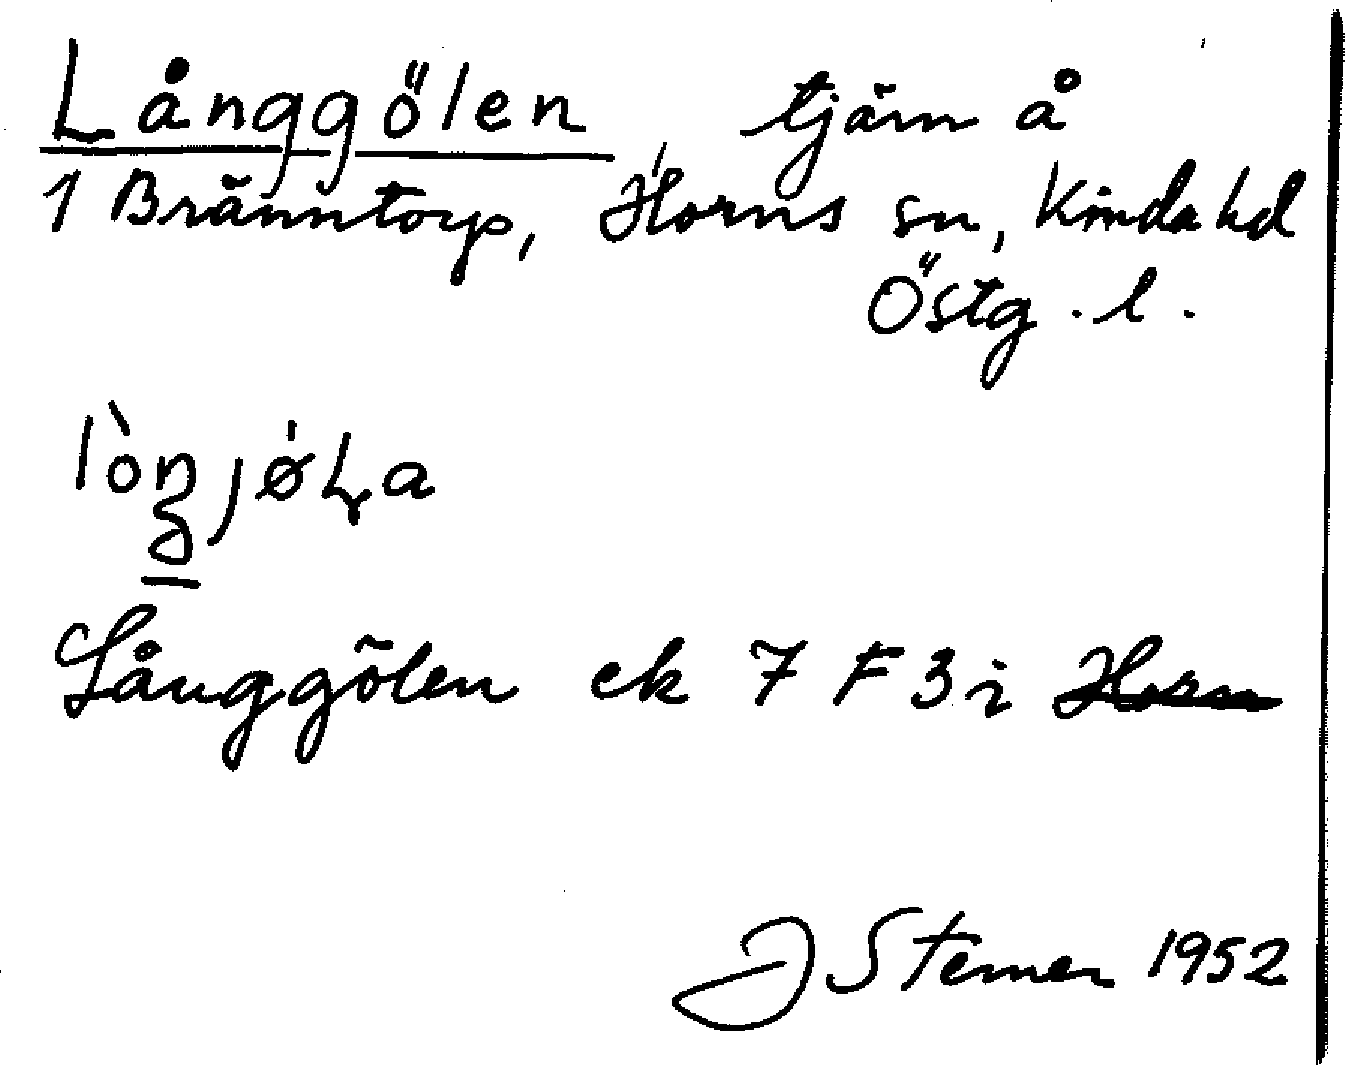 Långgölen, tjärn å
1 Bränntorp, Horns sn, Kinda hd
Östg. l.
Långgölen ek 7 F 3 i Horn
J Sterner 1952